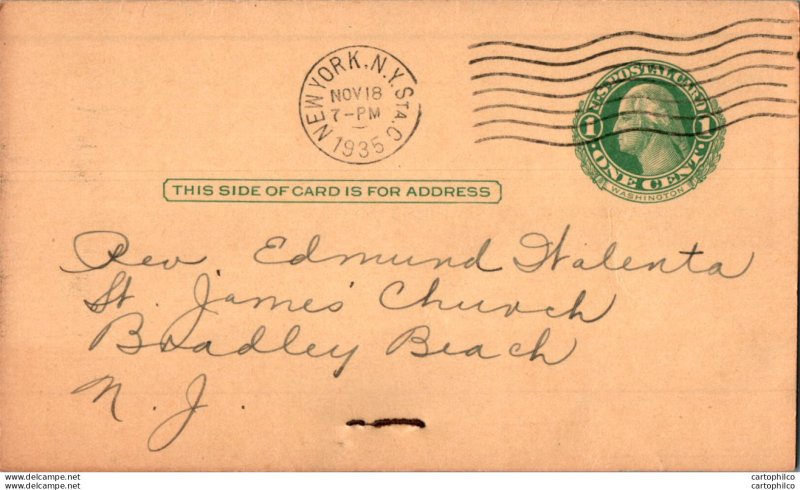 NEW YORK, N.Y. STA. C.
NOV 18
7-PM
1935
U.S. POSTAL CARD
1 1
ONE CENT
WASHINGTON
THIS SIDE OF CARD IS FOR ADDRESS
Rev. Edmund Walenta
St. James' Church
Bradley Beach
N. J.
www.delcampe.net
cartophilco
www.delcampe.net
cartophilco